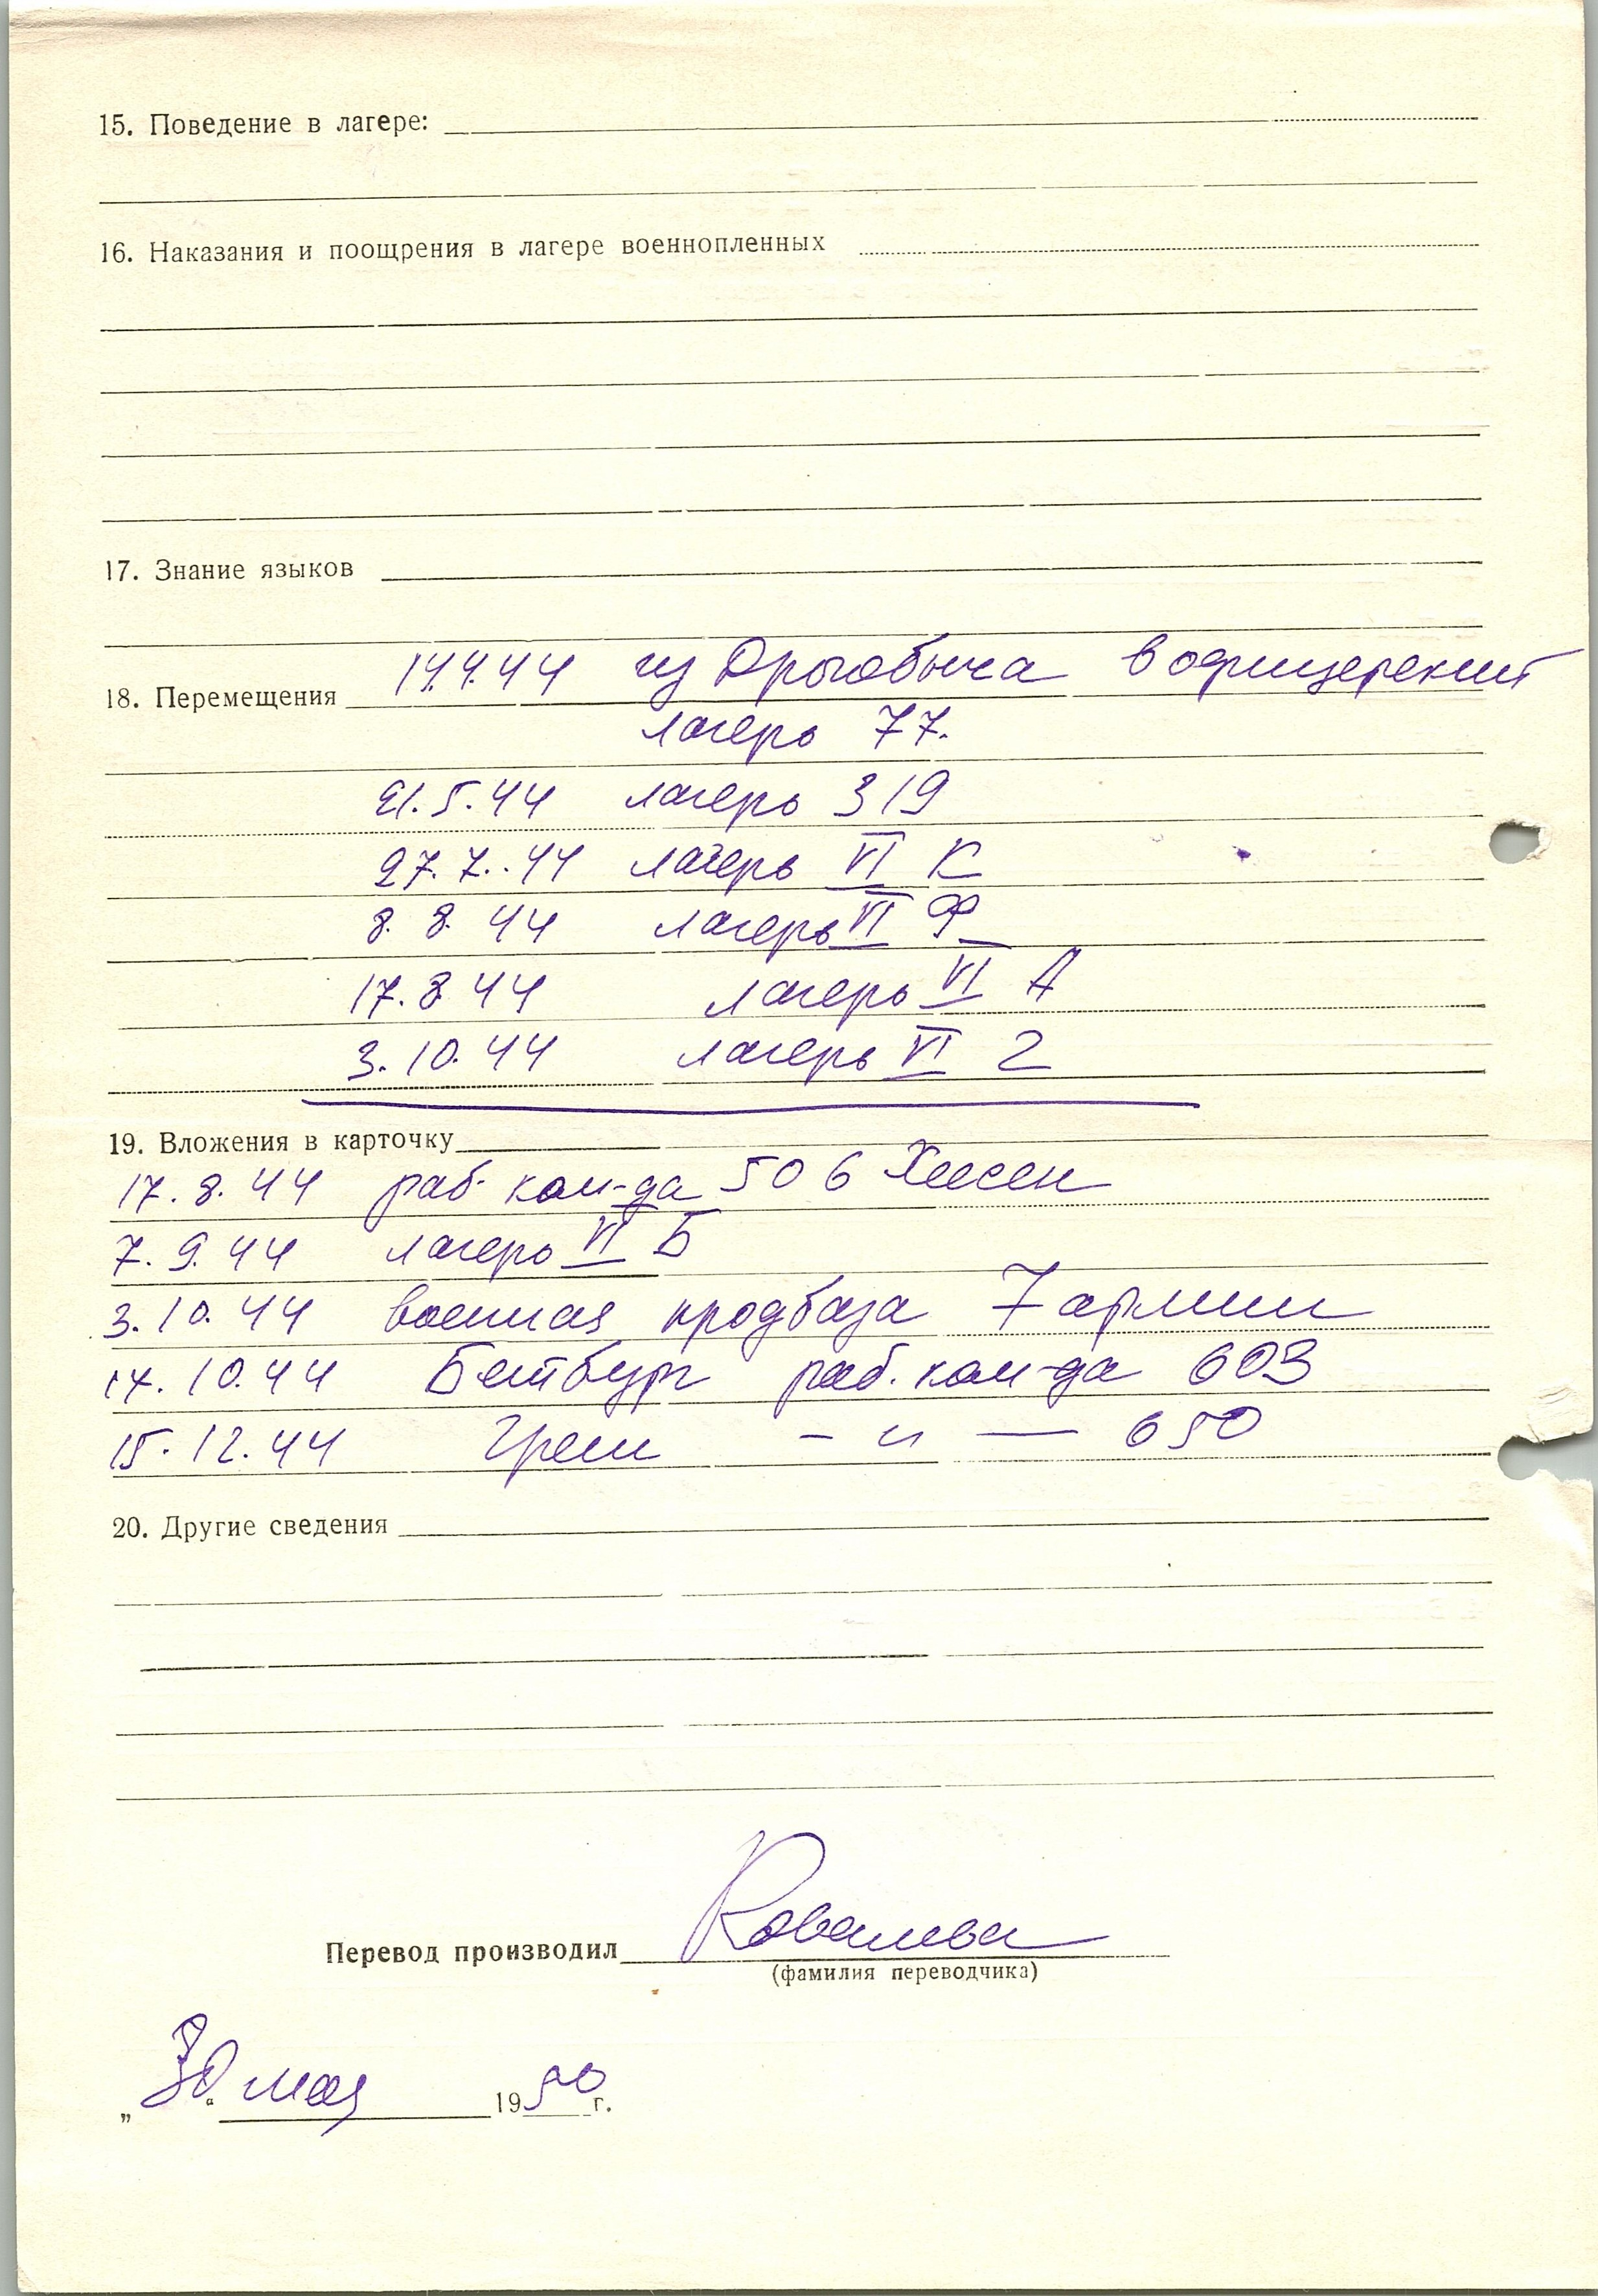 15. Поведение в лагере:
16. Наказания и поощрения в лагере военнопленных
17. Знание языков
18. Перемещения 14.4.44 из Дрогобыча в офицерский
лагерь 77.
21.5.44 лагерь 319
27.7.44 лагерь VI К
8.8.44 лагерь VI Ф
17.8.44 лагерь VI А
3.10.44 лагерь VI Г
19. Вложения в карточку
17.8.44 раб. ком-да 506 Хессен
7.9.44 лагерь VI Б
3.10.44 военная продбаза 7 армии
14.10.44 Бетбург раб. ком-да 603
15.12.44 – " — 650
20. Другие сведения
Перевод производил Ковалева
(фамилия переводчика)
„30“ мая 1950 г.